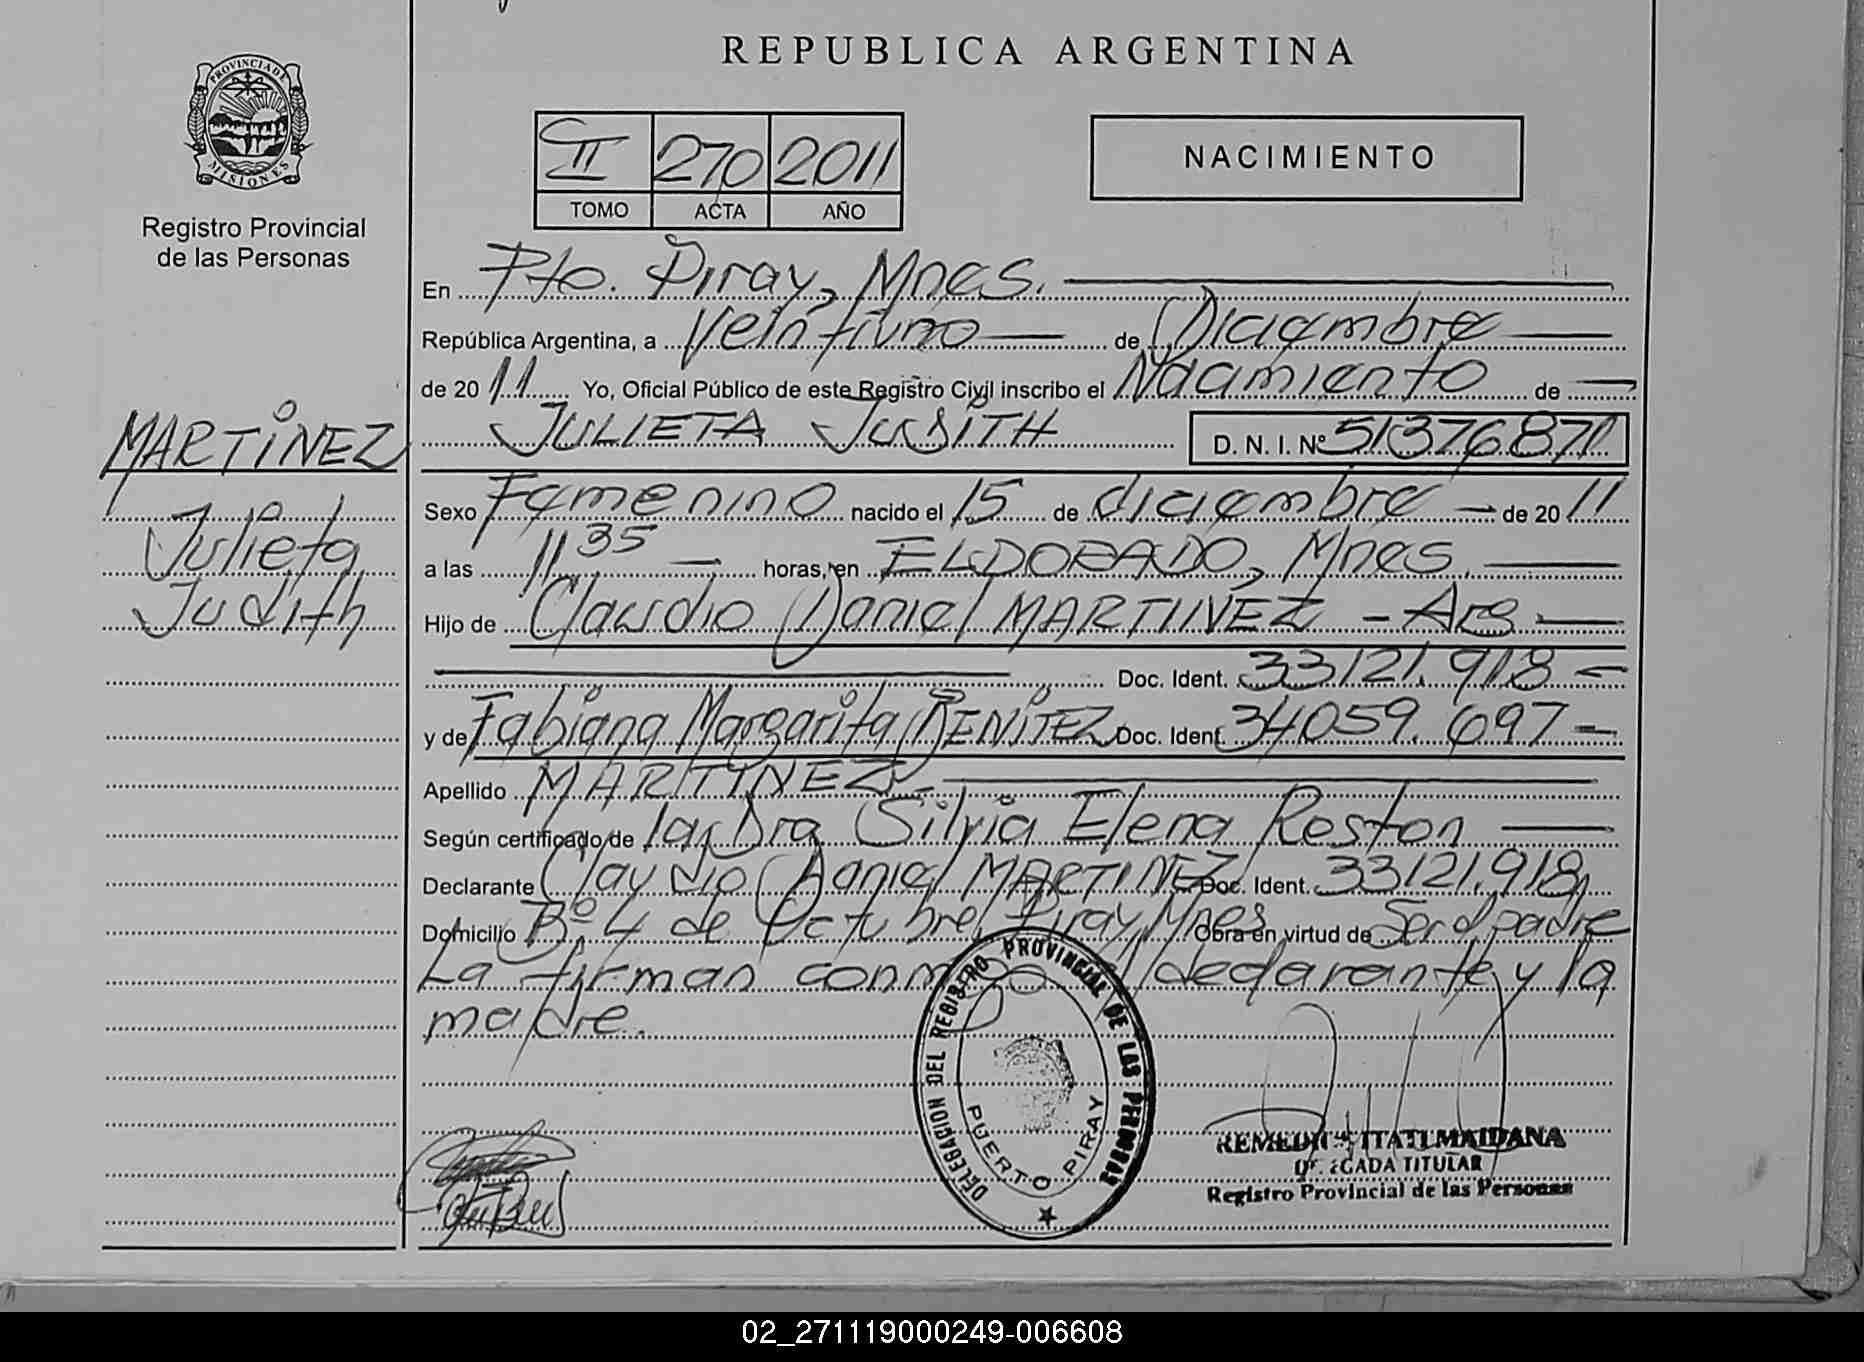 PROVINCIA DE
MISIONES
Registro Provincial
de las Personas
MARTiNEZ
Julieta
Judith
REPUBLICA ARGENTINA
II 270 2011
TOMO ACTA AÑO
NACIMIENTO
En Pto. Piray, Mnes.
República Argentina, a Veintiuno de Diciembre
de 20 11 Yo, Oficial Público de este Registro Civil inscribo el Nacimiento de
JULIETA JUDiTH D. N. I. Nº 51376871
Sexo Femenino nacido el 15 de diciembre de 20 11
a las 11 35 horas, en ELDORADO, Mnes.
Hijo de Claudio Daniel MARTINEZ - Arg
Doc. Ident. 33121.918
y de Fabiana Margarita BENiTEZ Doc. Ident. 34059.697
Apellido MARTINEZ
Según certificado de la Dra Silvia Elena Reston
Declarante Claudio Daniel MARTINEZ Doc. Ident. 33121.918
Domicilio Bº 4 de Octubre, Piray, Mnes Obra en virtud de Ser el padre
La firman conmigo el declarante y la
madre.
DELEGACION DEL REGISTRO PROVINCIAL DE LAS PERSONAS
PUERTO PIRAY
REMEDIOS ITATI MAIDANA
DELEGADA TITULAR
Registro Provincial de las Personas
02_271119000249-006608